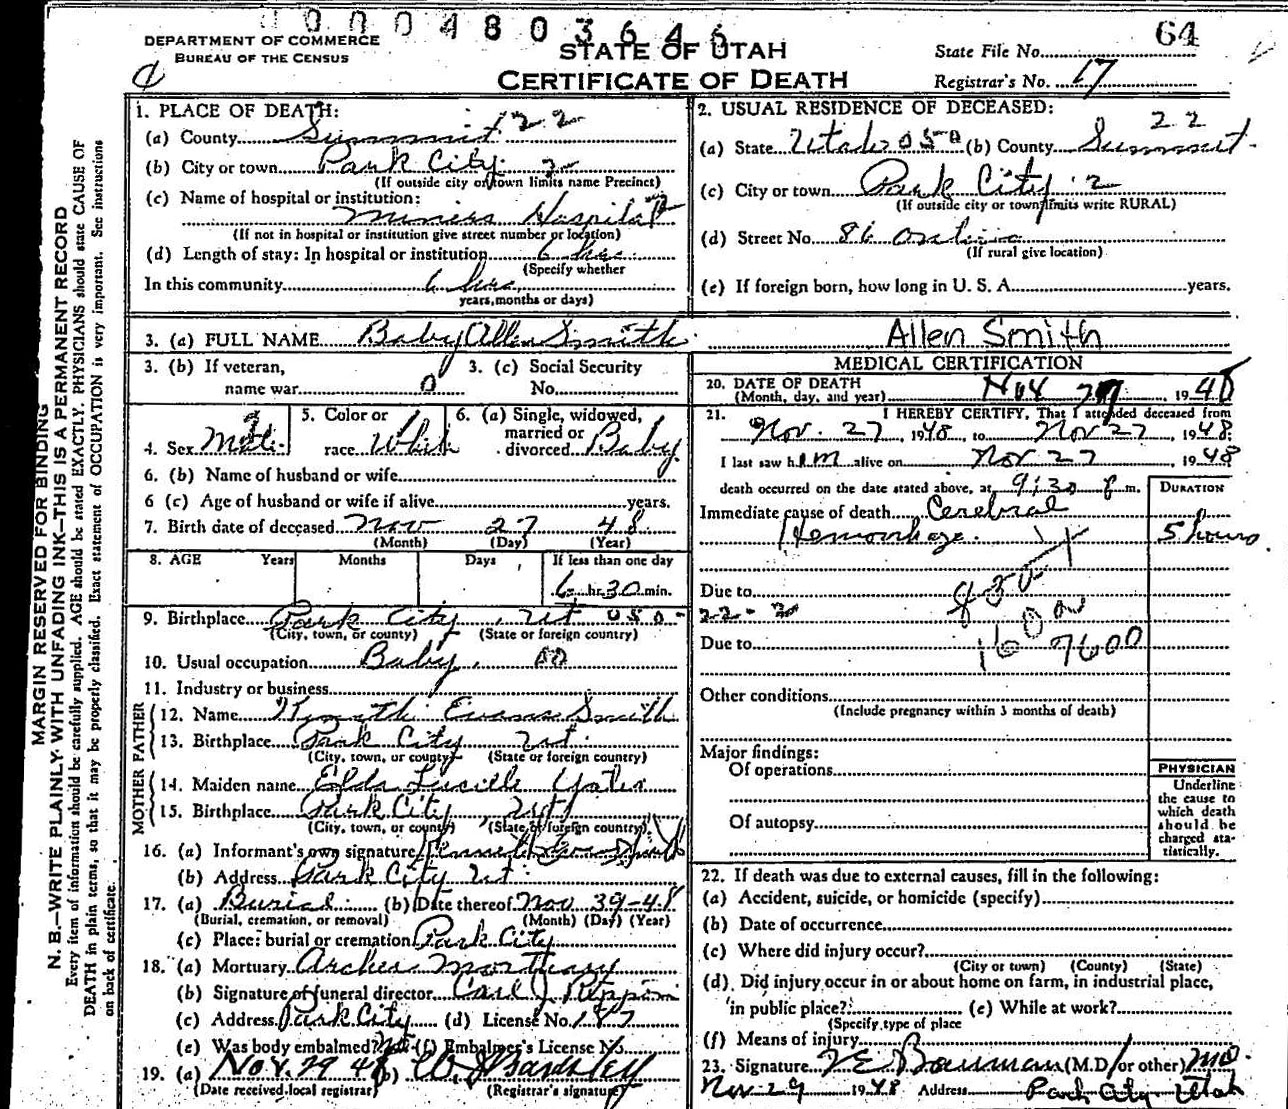 00004803646
64
DEPARTMENT OF COMMERCE
BUREAU OF THE CENSUS
STATE OF UTAH
CERTIFICATE OF DEATH
State File No.
Registrar's No. 17
MARGIN RESERVED FOR BINDING
N. B.—WRITE PLAINLY WITH UNFADING INK—THIS IS A PERMANENT RECORD
Every item of information should be carefully supplied. AGE should be stated EXACTLY. PHYSICIANS should state CAUSE OF
DEATH in plain terms, so that it may be properly classified. Exact statement of OCCUPATION is very important. See instructions
on back of certificate.
1. PLACE OF DEATH:
(a) County Summit 22
(b) City or town Park City 2
(If outside city or town limits name Precinct)
(c) Name of hospital or institution:
Miners Hospital
(If not in hospital or institution give street number or location)
(d) Length of stay: In hospital or institution 6 hrs.
(Specify whether
In this community 6 hrs.
years, months or days)
2. USUAL RESIDENCE OF DECEASED:
22
(a) State Utah 050 (b) County Summit
(c) City or town Park City 2
(If outside city or town limits write RURAL)
(d) Street No. 86
(If rural give location)
(e) If foreign born, how long in U. S. A. years.
3. (a) FULL NAME Baby Allen Smith
Allen Smith
3. (b) If veteran,
name war 0
3. (c) Social Security
No.
4. Sex Male
5. Color or
race White
6. (a) Single, widowed,
married or
divorced Baby
6. (b) Name of husband or wife
6 (c) Age of husband or wife if alive years.
7. Birth date of deceased Nov 27 48
(Month) (Day) (Year)
8. AGE Years Months Days If less than one day
6 hr. 30 min.
9. Birthplace Park City, Ut 050-
(City, town, or county) (State or foreign country)
10. Usual occupation Baby. 00
11. Industry or business
FATHER
12. Name Evans Smith
13. Birthplace Park City Ut.
(City, town, or county) (State or foreign country)
MOTHER
14. Maiden name Lucille Yates
15. Birthplace Park City, Ut
(City, town, or county) (State or foreign country)
16. (a) Informant's own signature Kenneth Evans Smith
(b) Address Park City Ut.
17. (a) Burial (b) Date thereof Nov 39-48
(Burial, cremation, or removal) (Month) (Day) (Year)
(c) Place: burial or cremation Park City
18. (a) Mortuary Archer Mortuary
(b) Signature of funeral director Carl J
(c) Address Park City (d) License No. 187
(e) Was body embalmed? (f) Embalmer's License No.
19. (a) Nov. 29 48 (b)
(Date received local registrar) (Registrar's signature)
MEDICAL CERTIFICATION
20. DATE OF DEATH
(Month, day, and year) Nov 27, 1948
21. I HEREBY CERTIFY, That I attended deceased from
Nov. 27, 1948, to Nov 27, 1948;
I last saw him alive on Nov 27 1948
death occurred on the date stated above, at 9:30 P m.
DURATION
Immediate cause of death Cerebral
Hemorrhage. 5 hours.
Due to
22-2
Due to 160 7600
Other conditions
(Include pregnancy within 3 months of death)
Major findings:
Of operations
Of autopsy
PHYSICIAN
Underline
the cause to
which death
should be
charged sta-
tistically.
22. If death was due to external causes, fill in the following:
(a) Accident, suicide, or homicide (specify)
(b) Date of occurrence
(c) Where did injury occur?
(City or town) (County) (State)
(d) Did injury occur in or about home on farm, in industrial place,
in public place? (e) While at work?
(Specify type of place
(f) Means of injury
23. Signature Bauman (M.D. or other) MD.
Nov 29 1948 Address Park City Utah